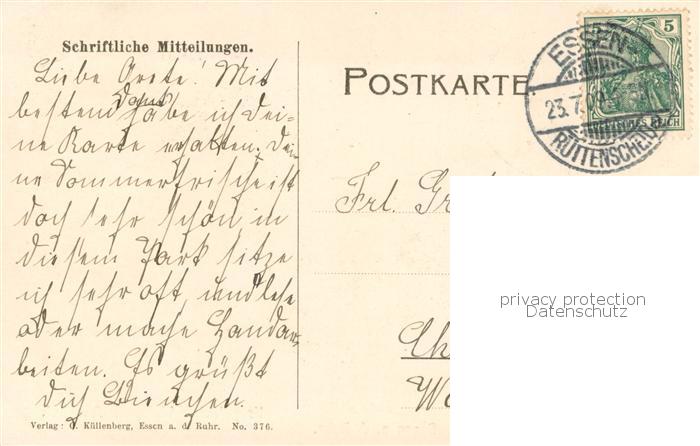 Schriftliche Mitteilungen.
Liebe Grete! Mit
bestem Dank habe ich Dei-
ne Karte erhalten. Dei-
ne Sommerfrische ist
doch sehr schön, in
diesem Park sitze
ich sehr oft, und lese
oder mache Handar-
beiten. Es grüßt
Dich
Verlag: Küllenberg, Essen a. d. Ruhr. No. 376.
POSTKARTE
ESSEN
23.7.
RÜTTENSCHEID
5
DEUTSCHES REICH
Frl.
privacy protection
Datenschutz